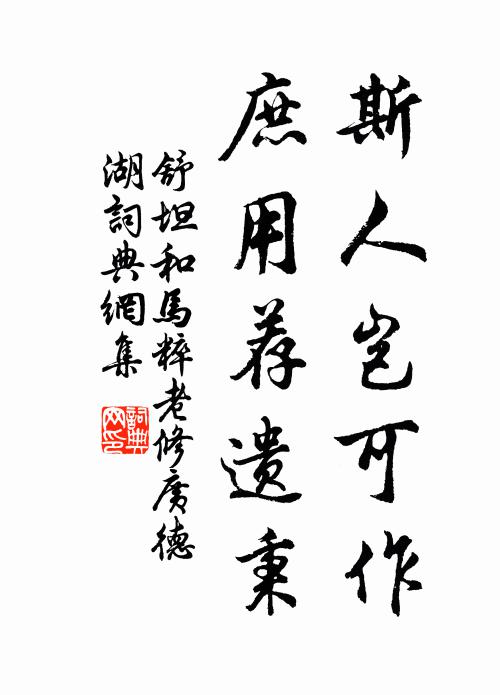 斯人豈可作
庶用荐遺秉
舒坦和馬粹老修廣德
湖詞典網集
詞典
网印